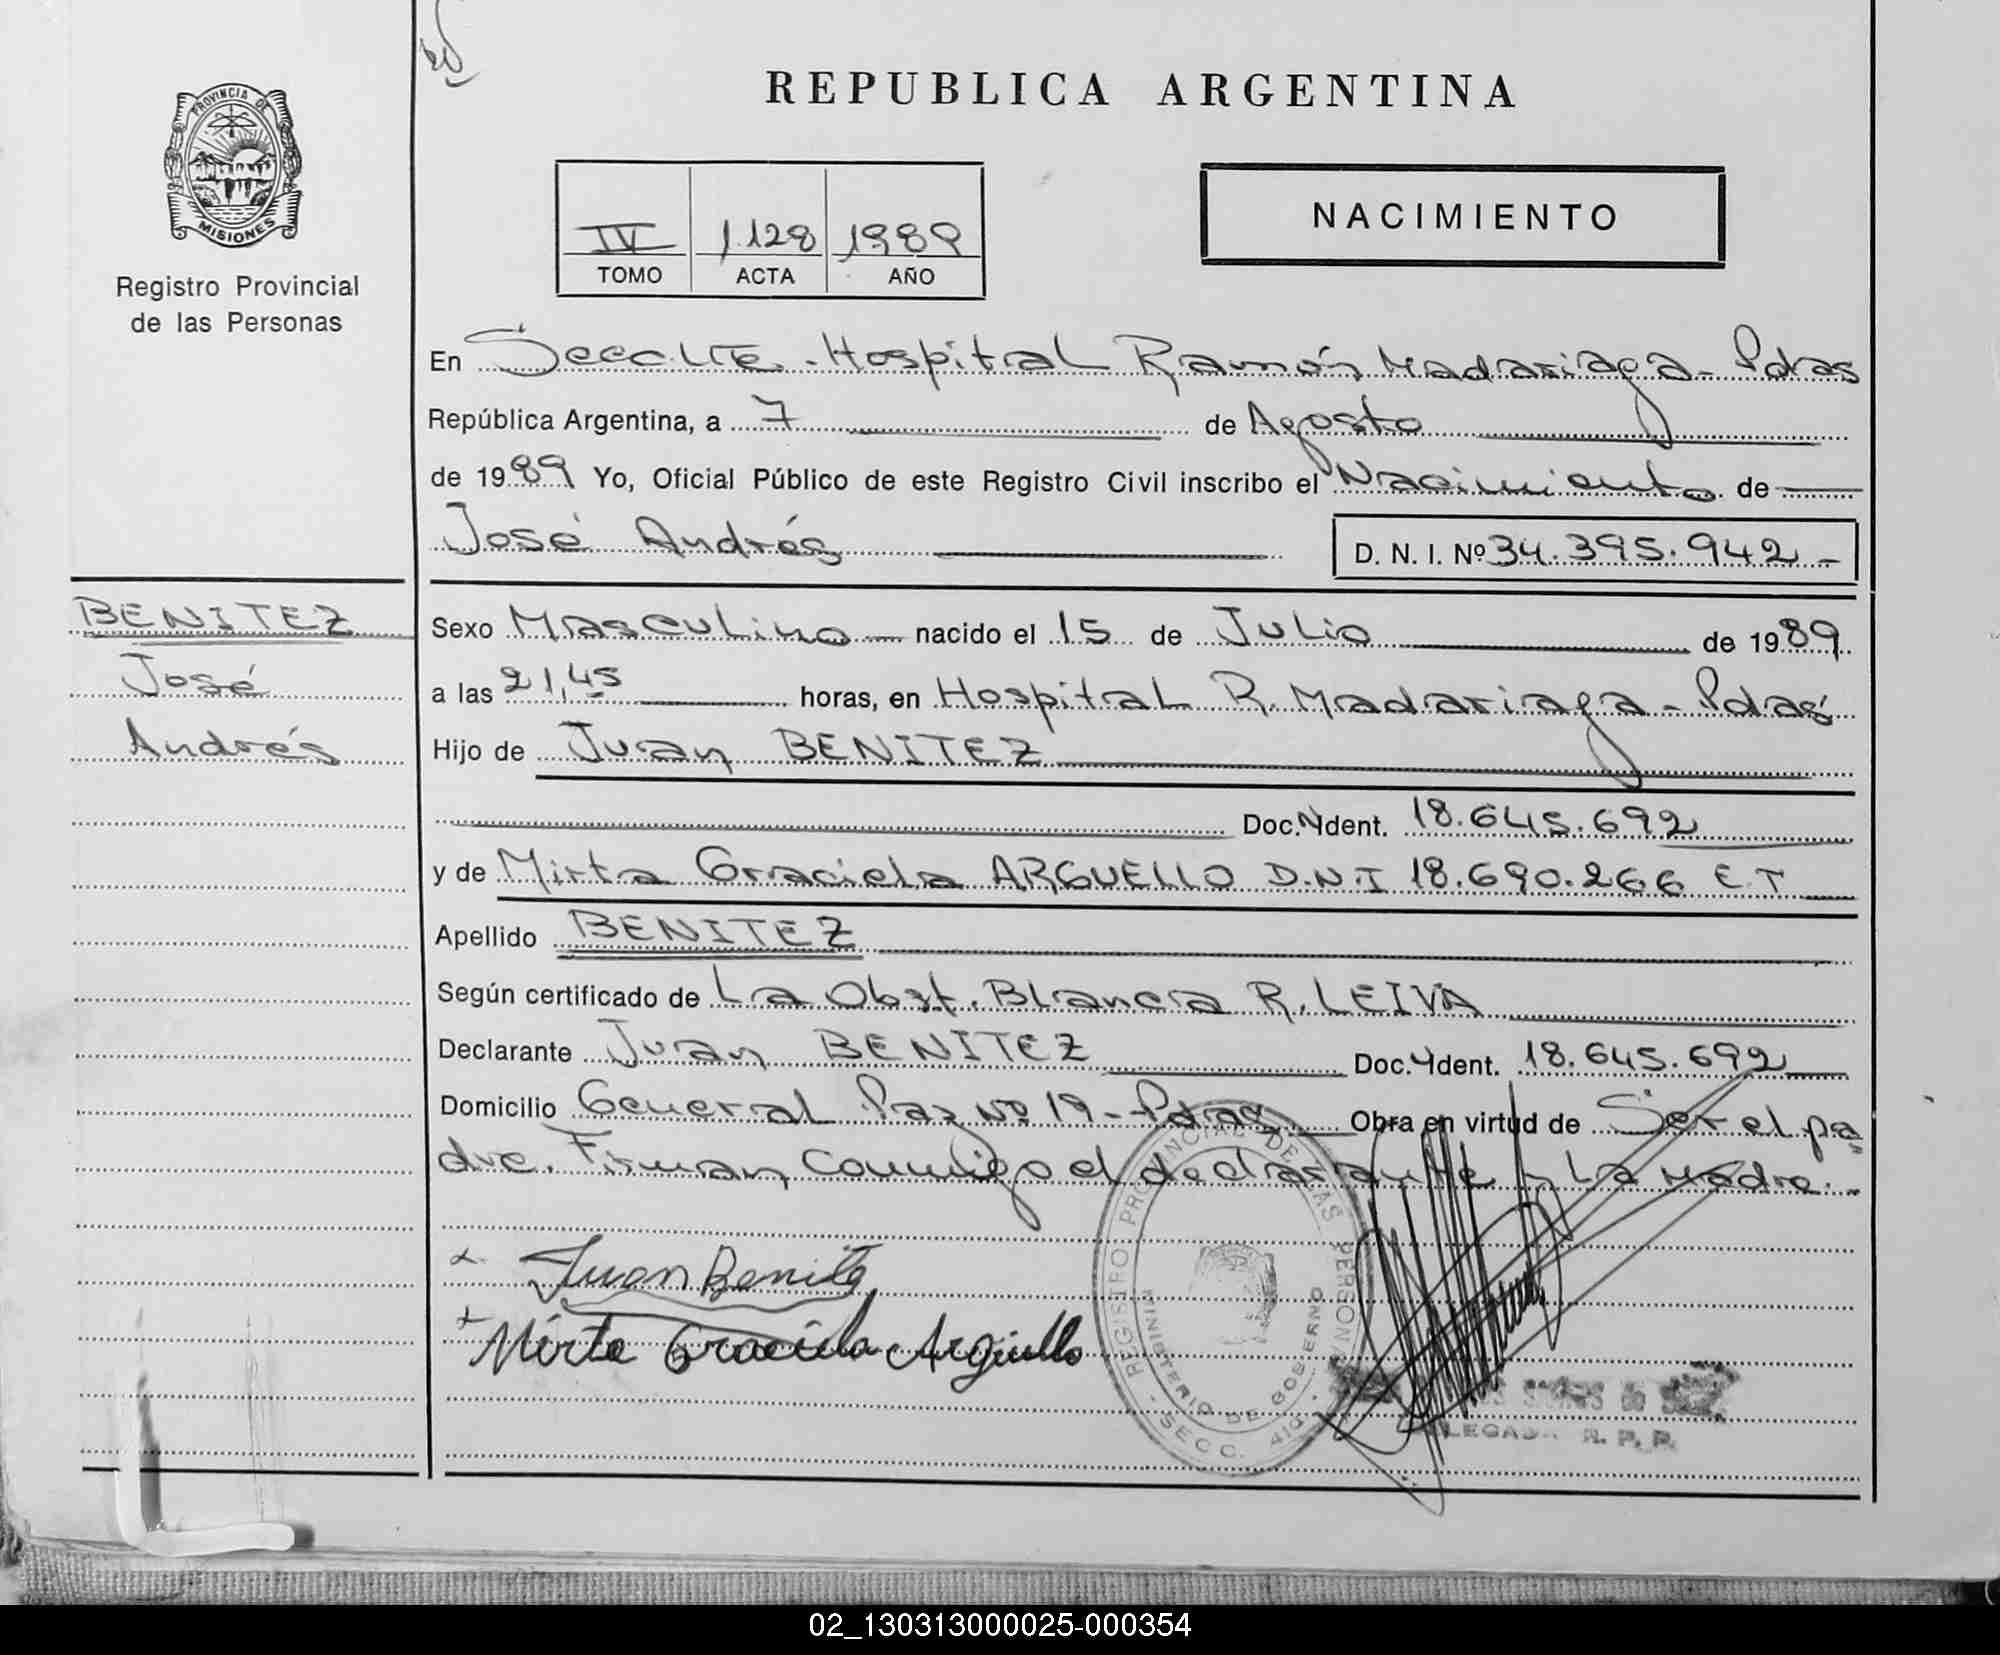 REPUBLICA ARGENTINA
PROVINCIA DE
MISIONES
Registro Provincial
de las Personas
NACIMIENTO
IV 1.128 1989
TOMO ACTA AÑO
En Secc. Hospital Ramón Madariaga - Pdas
República Argentina, a 7 de Agosto
de 1989 Yo, Oficial Público de este Registro Civil inscribo el Nacimiento de
José Andrés D. N. I. Nº 34.395.942 -
BENITEZ
José
Andrés
Sexo Masculino nacido el 15 de Julio de 1989
a las 21,45 horas, en Hospital R. Madariaga - Pdas
Hijo de Juan BENITEZ
Doc. Ident. 18.645.692
y de Mirta Graciela ARGUELLO D.N.I 18.690.266 E.T
Apellido BENITEZ
Según certificado de La Obst. Blanca R. LEIVA
Declarante Juan BENITEZ Doc. Ident. 18.645.692
Domicilio General Paz Nº 19 - Pdas Obra en virtud de Ser el pa
dre. Firman conmigo el declarante y La Madre. -
Juan Benitez
Mirta Graciela Arguello
REGISTRO PROVINCIAL DE LAS PERSONAS
MINISTERIO DE GOBIERNO
- SECC. 410 -
R. P. P.
02_130313000025-000354